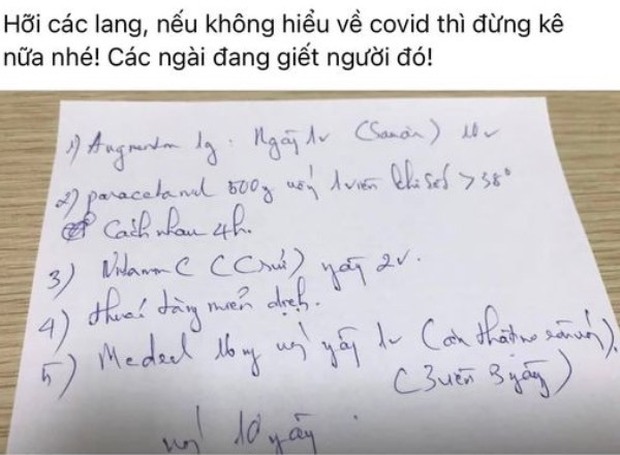 Hỡi các lang, nếu không hiểu về covid thì đừng kê
nữa nhé! Các ngài đang giết người đó!
1) Augmentin 1g. Ngày 1v 10v
2) paracetamol 500g uống 1 viên khi sốt > 38°
Cách nhau 4h.
3) Vitamin C (C sủi) ngày 2v.
4) thuốc tăng miễn dịch.
5) Medrol 16mg uống ngày 1v
(3 viên 3 ngày)
uống 10 ngày